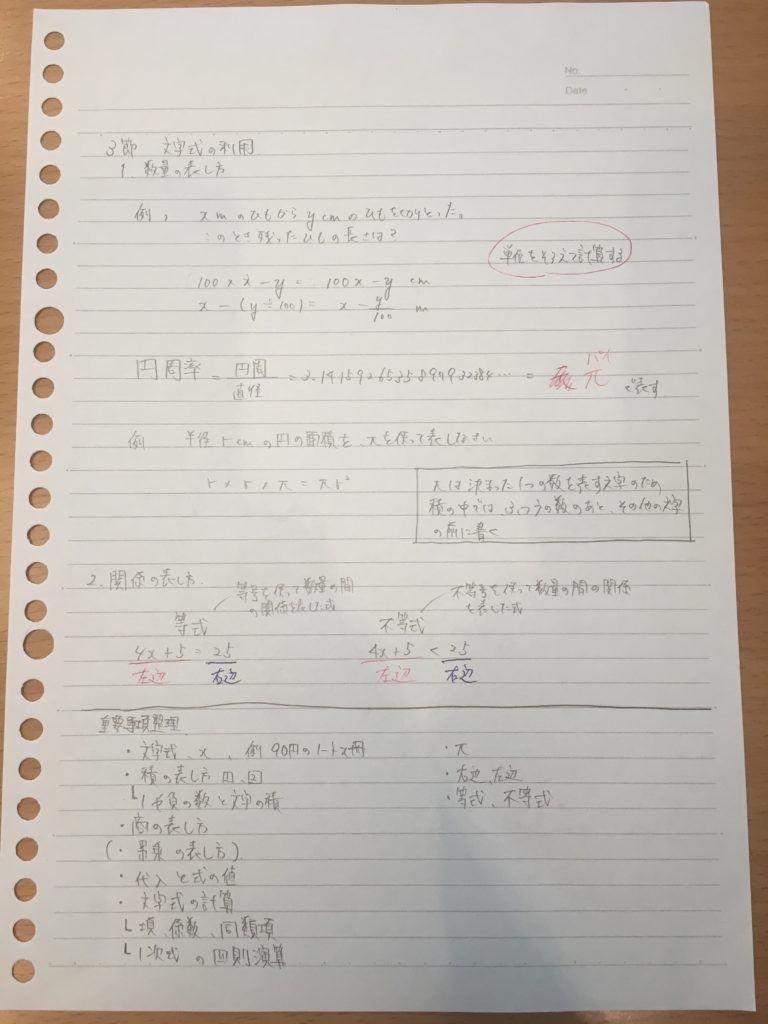 No.
Date
3節 文字式の利用
1. 数量の表し方
例, x m のひもから y cm のひもを切りとった。
このとき残ったひもの長さは?
単位をそろえて計算する
100 × x - y = 100x - y cm
x - (y ÷ 100) = x - y/100 m
円周率 = 円周/直径 = 3.1415926535897932384… = π で表す
パイ
例 半径 r cm の円の面積を、πを使って表しなさい
r × r × π = πr²
πは決まった1つの数を表す文字のため
積の中では、ふつうの数のあと、その他の文字
の前に書く
2. 関係の表し方.
等号を使って数量の間
の関係を表した式
不等号を使って数量の間の関係
を表した式
等式 不等式
4x + 5 = 25 4x + 5 < 25
左辺 右辺 左辺 右辺
重要事項整理
・文字式、x、例 90円のノートx冊 ・π
・積の表し方 ・右辺、左辺
└1や負の数と文字の積 ・等式、不等式
・商の表し方
(・累乗の表し方)
・代入と式の値
・文字式の計算
└項、係数、同類項
└1次式の四則演算